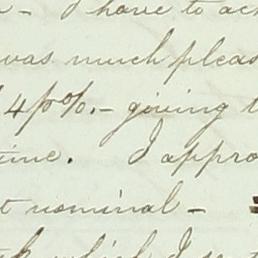 - I have to ack
was much pleas
4 p%. - giving t
time. I appro
t nominal -
which I